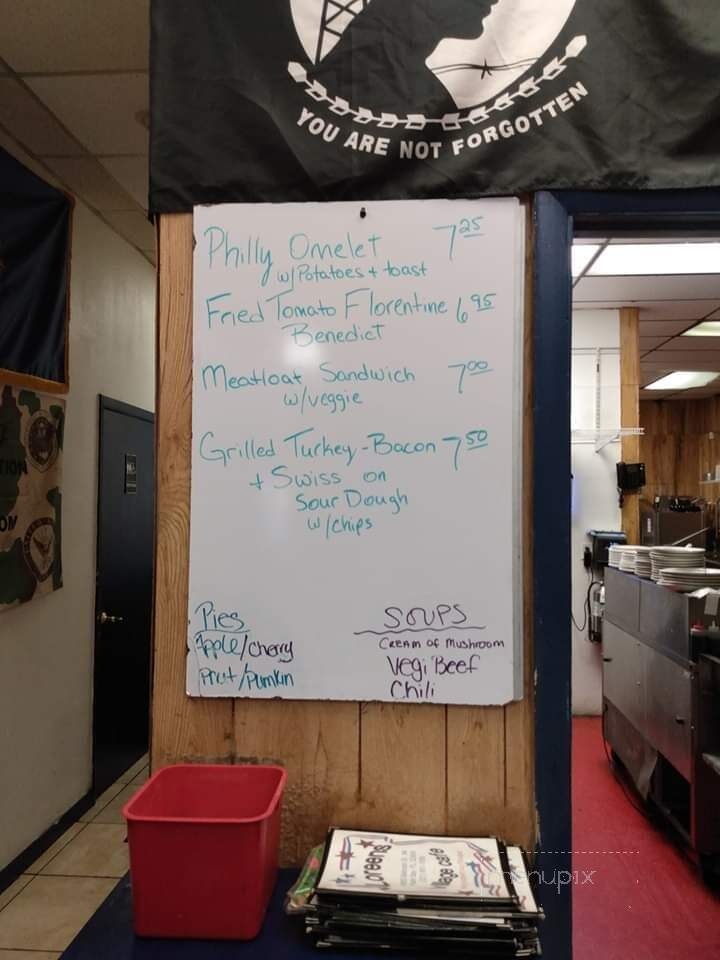 YOU ARE NOT FORGOTTEN
Philly Omelet 7 25
w/Potatoes + toast
Fried Tomato Florentine 6 95
Benedict
Meatloaf Sandwich 7 00
w/veggie
Grilled Turkey-Bacon 7 50
+ Swiss on
Sour Dough
w/chips
Pies
Apple/Cherry
/Pumkin
SOUPS
Cream of Mushroom
Vegi Beef
Chili
Loreens
Village Cafe
menupix